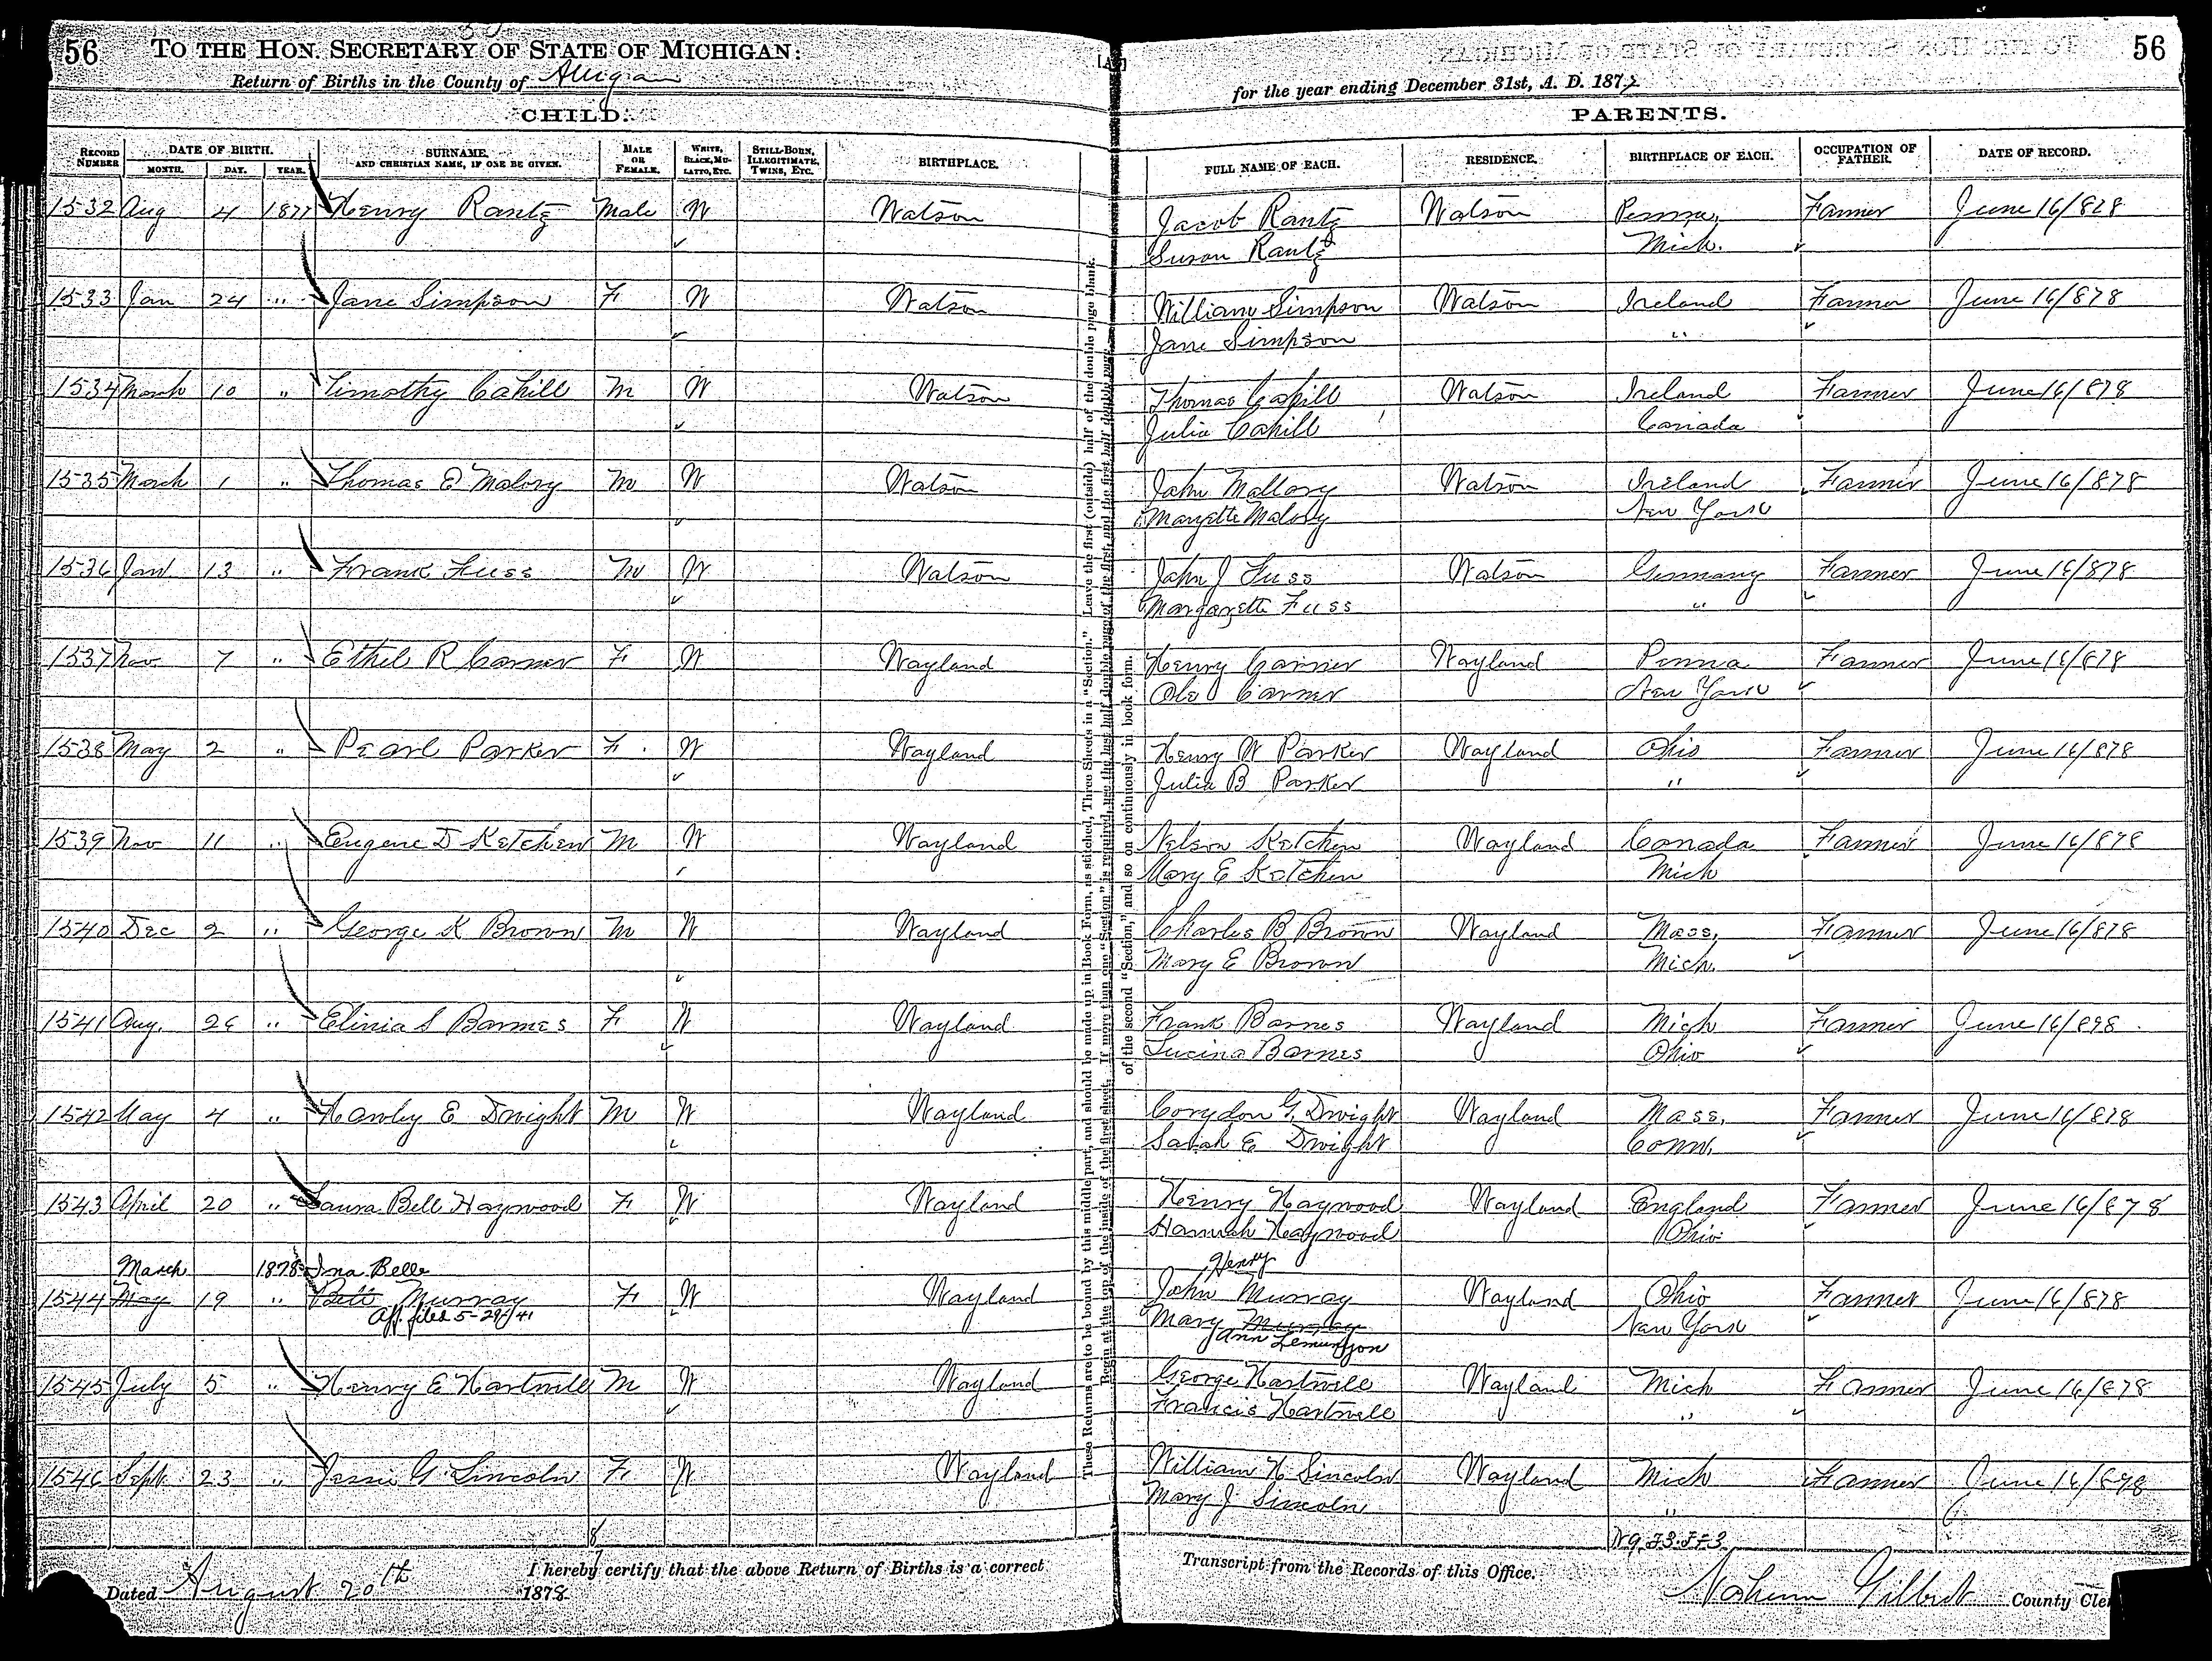 56 TO THE HON. SECRETARY OF STATE OF MICHIGAN: 56
Return of Births in the County of Allegan for the year ending December 31st, A. D. 1877
CHILD. PARENTS.
RECORD NUMBER DATE OF BIRTH. MONTH. DAY. YEAR. SURNAME, AND CHRISTIAN NAME, IF ONE BE GIVEN. MALE OR FEMALE. WHITE, BLACK, MULATTO, ETC. STILL-BORN, ILLEGITIMATE, TWINS, ETC. BIRTHPLACE. FULL NAME OF EACH. RESIDENCE. BIRTHPLACE OF EACH. OCCUPATION OF FATHER. DATE OF RECORD.
1532 Aug 4 1877 Henry Rantz Male W Watson Jacob Rantz Watson Penna, Farmer June 16/878
Susan Rantz Mich.
1533 Jan 24 " Jane Simpson F W Watson William Simpson Watson Ireland Farmer June 16/878
Jane Simpson "
1534 March 10 " Timothy Cahill M W Watson Thomas Cahill Watson Ireland Farmer June 16/878
Julia Cahill Canada
1535 March 1 " Thomas E Malory M W Watson John Mallory Watson Ireland Farmer June 16/878
Maryette Malory New York
1536 Jan 13 " Frank Fuss M W Watson John J Fuss Watson Germany Farmer June 16/878
Margarette Fuss "
1537 Nov 7 " Ethel R Carner F W Wayland Henry Carner Wayland Penna Farmer June 16/878
Ole Carner New York
1538 May 2 " Pearl Parker F. W Wayland Henry W Parker Wayland Ohio Farmer June 16/878
Julia B Parker "
1539 Nov 11 " Eugene D Ketchen M W Wayland Nelson Ketchen Wayland Canada Farmer June 16/878
Mary E Ketchen Mich
1540 Dec 2 " George K Brown M W Wayland Charles B Brown Wayland Mass, Farmer June 16/878
Mary E Brown Mich.
1541 Aug. 26 " Elinia S Barnes F W Wayland Frank Barnes Wayland Mich Farmer June 16/878
Lucina Barnes Ohio
1542 May 4 " Hawley E Dwight M W Wayland Corydon G. Dwight Wayland Mass, Farmer June 16/878
Sarah E Dwight Conn,
1543 April 20 " Laura Bell Haywood F W Wayland Henry Haywood Wayland England Farmer June 16/878
Hannah Haywood Ohio
March 1878 Ina Belle Henry
1544 May 19 " Bell Murray F W Wayland John Murray Wayland Ohio Farmer June 16/878
Aff. filed 5-29/41 Mary Murray New York
Ann Lemunyon
1545 July 5 " Henry E Hartwell M W Wayland George Hartwell Wayland Mich Farmer June 16/878
Francis Hartwell "
1546 Sept. 23 " Jessie G. Lincoln F W Wayland William H Lincoln Wayland Mich Farmer June 16/878
Mary J Lincoln "
These Returns are to be bound by this middle part, and should be made up in Book Form, as stitched, Three Sheets in a "Section." Leave the first (outside) half of the double page blank.
Begin at the top of the inside of the first sheet. If more than one "Section" is required, use the last half double page of the first, and the first half double page
of the second "Section," and so on continuously in book form.
I hereby certify that the above Return of Births is a correct Transcript from the Records of this Office.
Dated August 20th 1878 Nahum Gilbert County Cler